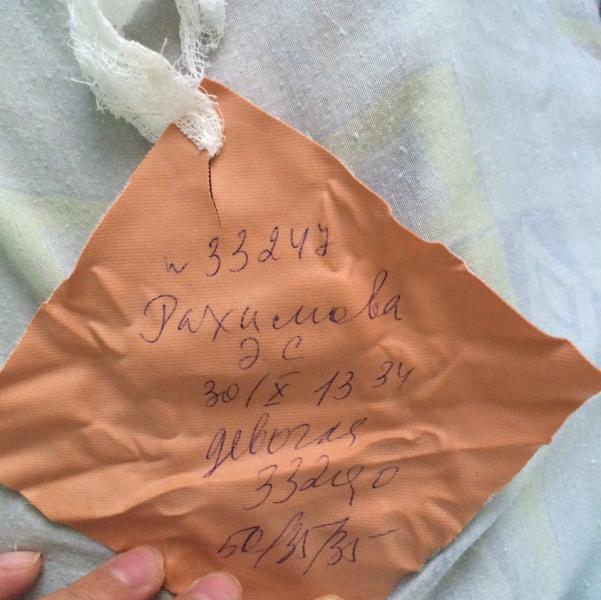 н 33247
Рахимова
Э.С
30/X 13 34
девочка
50/35/35